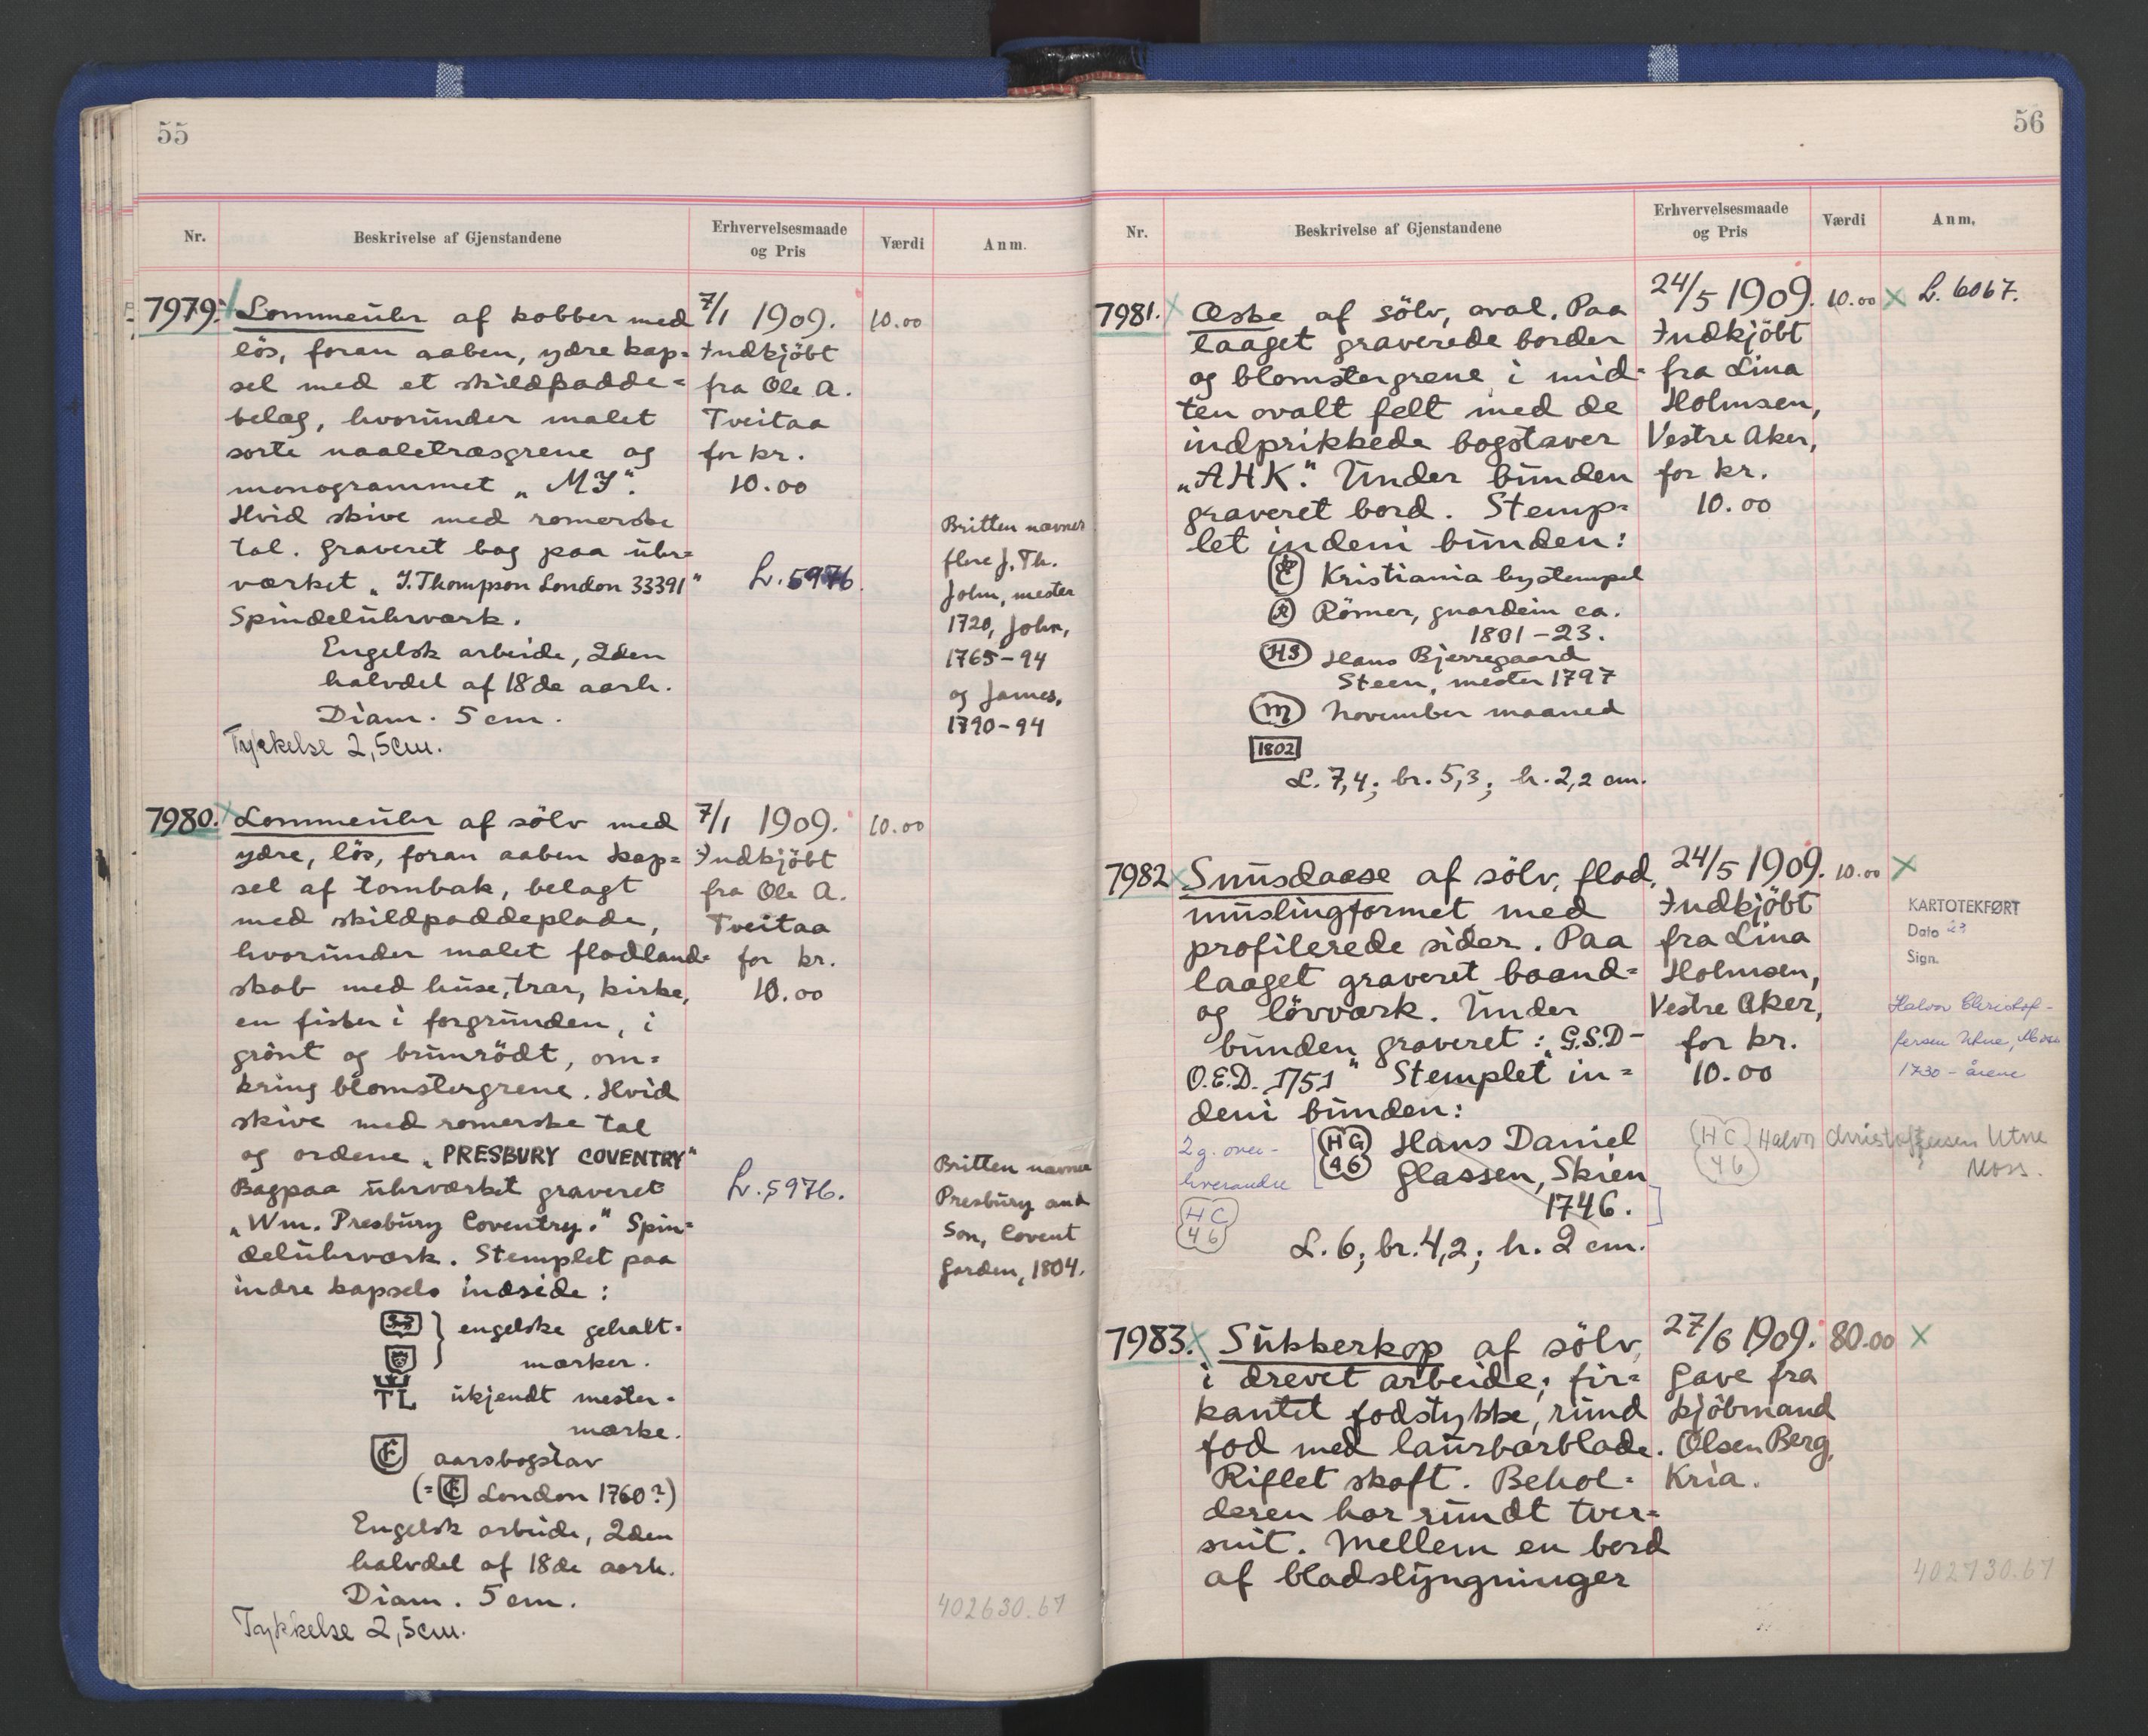 55
Nr.
Beskrivelse af Gjenstandene
Erhvervelsesmaade
og Pris
Værdi
Anm.
7979.
Lommeuhr af kobber med
lös, foran aaben, ydre kap-
sel med et skildpadde-
belæg, hvorunder malet
sorte naaletræsgrene og
monogrammet „MJ“.
Hvid skive med romerske
tal. Graveret bag paa uhr-
værket „J. Thompson London 33391“
Spindeluhrværk.
Engelsk arbeide, 2den
halvdel af 18de aarh.
Diam. 5 cm.
Tykkelse 2,5cm.
7/1 1909.
Indkjöbt
fra Ole A.
Tveitaa
for kr.
10.00
L. 5976.
10.00
Britten nævner
flere J. Th.
John, mester
1720, John,
1765-94
og James,
1790-94
7980.
Lommeuhr af sölv med
ydre, lös, foran aaben kap-
sel af tombak, belagt
med skildpaddeplade,
hvorunder malet flodland-
skab med huse, trær, kirke,
en fisker i forgrunden, i
grönt og brunrödt, om-
kring blomstergrene. Hvid
skive med romerske tal
og ordene „PRESBURY COVENTRY“
Bagpaa uhrværket graveret
„Wm. Presbury Coventry.“ Spin-
deluhrværk. Stemplet paa
indre kapsels indside:
engelske gehalt-
mærker.
TL ukjendt mester-
mærke.
E aarsbogstav
(= E London 1760?)
Engelsk arbeide, 2den
halvdel af 18de aarh.
Diam. 5 cm.
Tykkelse 2,5cm.
7/1 1909.
Indkjöbt
fra Ole A.
Tveitaa
for kr.
10.00
L. 5976.
10.00
Britten nævner
Presbury and
Son, Covent
Garden, 1804.
402630.67
56
Nr.
Beskrivelse af Gjenstandene
Erhvervelsesmaade
og Pris
Værdi
Anm.
7981.
Æske af sölv, oval. Paa
laaget graverede border
og blomstergrene i mid-
ten ovalt felt med de
indprikkede bogstaver
„AHK“. Under bunden
graveret bord. Stemp-
let indeni bunden:
C Kristiania bystempel
R Römer, guardein ca.
1801-23.
HS Hans Bjerregaard
Steen, mester 1797
m November maaned
1802
L. 7,4; br. 5,3; h. 2,2 cm.
24/5 1909.
Indkjöbt
fra Lina
Holmsen,
Vestre Aker,
for kr.
10.00
10.00
L. 6067.
7982
Snusdaase af sölv, flad,
muslingformet med
profilerede sider. Paa
laaget graveret baand-
og lövværk. Under
bunden graveret: „G.S.D-
O.E.D. 1751“ Stemplet in-
deni bunden:
HG 46 Hans Daniel
Glassen, Skien
1746.
L. 6; br. 4,2; h. 2 cm.
2 g. over-
hverandre
HC
46
24/5 1909.
Indkjöbt
fra Lina
Holmsen,
Vestre Aker,
for kr.
10.00
10.00
KARTOTEKFØRT
Dato 23
Sign.
Halvor Christof-
fersen Utne, Moss
1730-årene
HC
46
Halvor Christoffersen Utne
Moss.
7983.
Sukkerkop af sölv,
i drevet arbeide; fir-
kantet fodstykke, rund
fod med laurbærblade.
Riflet skaft. Behol-
deren har rundt tver-
snit. Mellem en bord
af bladslyngninger
27/6 1909.
Gave fra
kjöbmand
Olsen Berg,
Kria.
80.00
402730.67